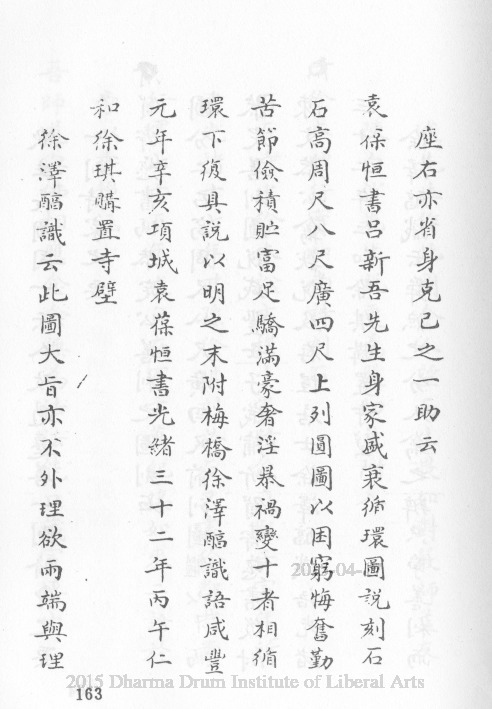 座右亦省身克己之一助云
袁保恒書呂新吾先生身家盛衰循環圖說刻石
石高周尺八尺廣四尺上列圓圖以困窮悔奮勤
苦節儉積貯富足驕滿豪奢淫暴禍變十者相循
環下復具說以明之末附梅橋徐澤醕識語咸豐
元年辛亥項城袁葆恒書光緒三十二年丙午仁
和徐琪購置寺壁
徐澤醕識云此圖大旨亦不外理欲兩端與理
2015 Dharma Drum Institute of Liberal Arts
163